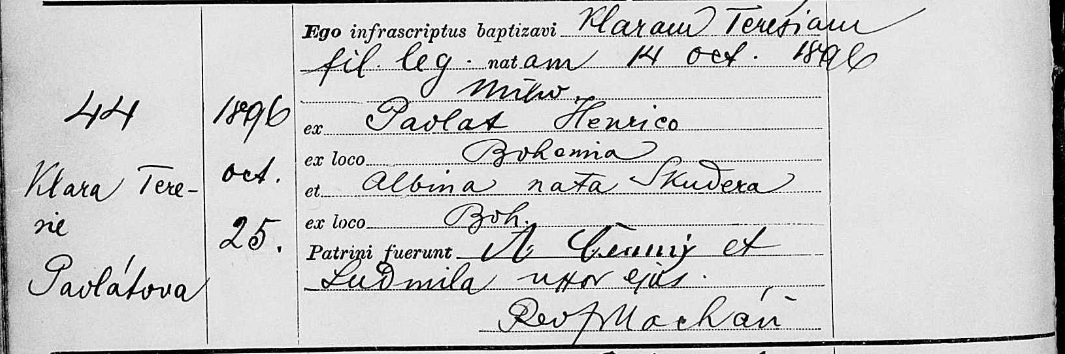 44
Klara Tere-
sie
Pavlátova
1896
oct.
25.
Ego infrascriptus baptizavi Klaram Teresiam
fil. leg. natam 14 oct. 1896
Milw.
ex Pavlat Henrico
ex loco Bohemia
et Albina nata Skudera
ex loco Boh.
Patrini fuerunt A Černý et
Ludmila uxor ejus.
Rev J Machán